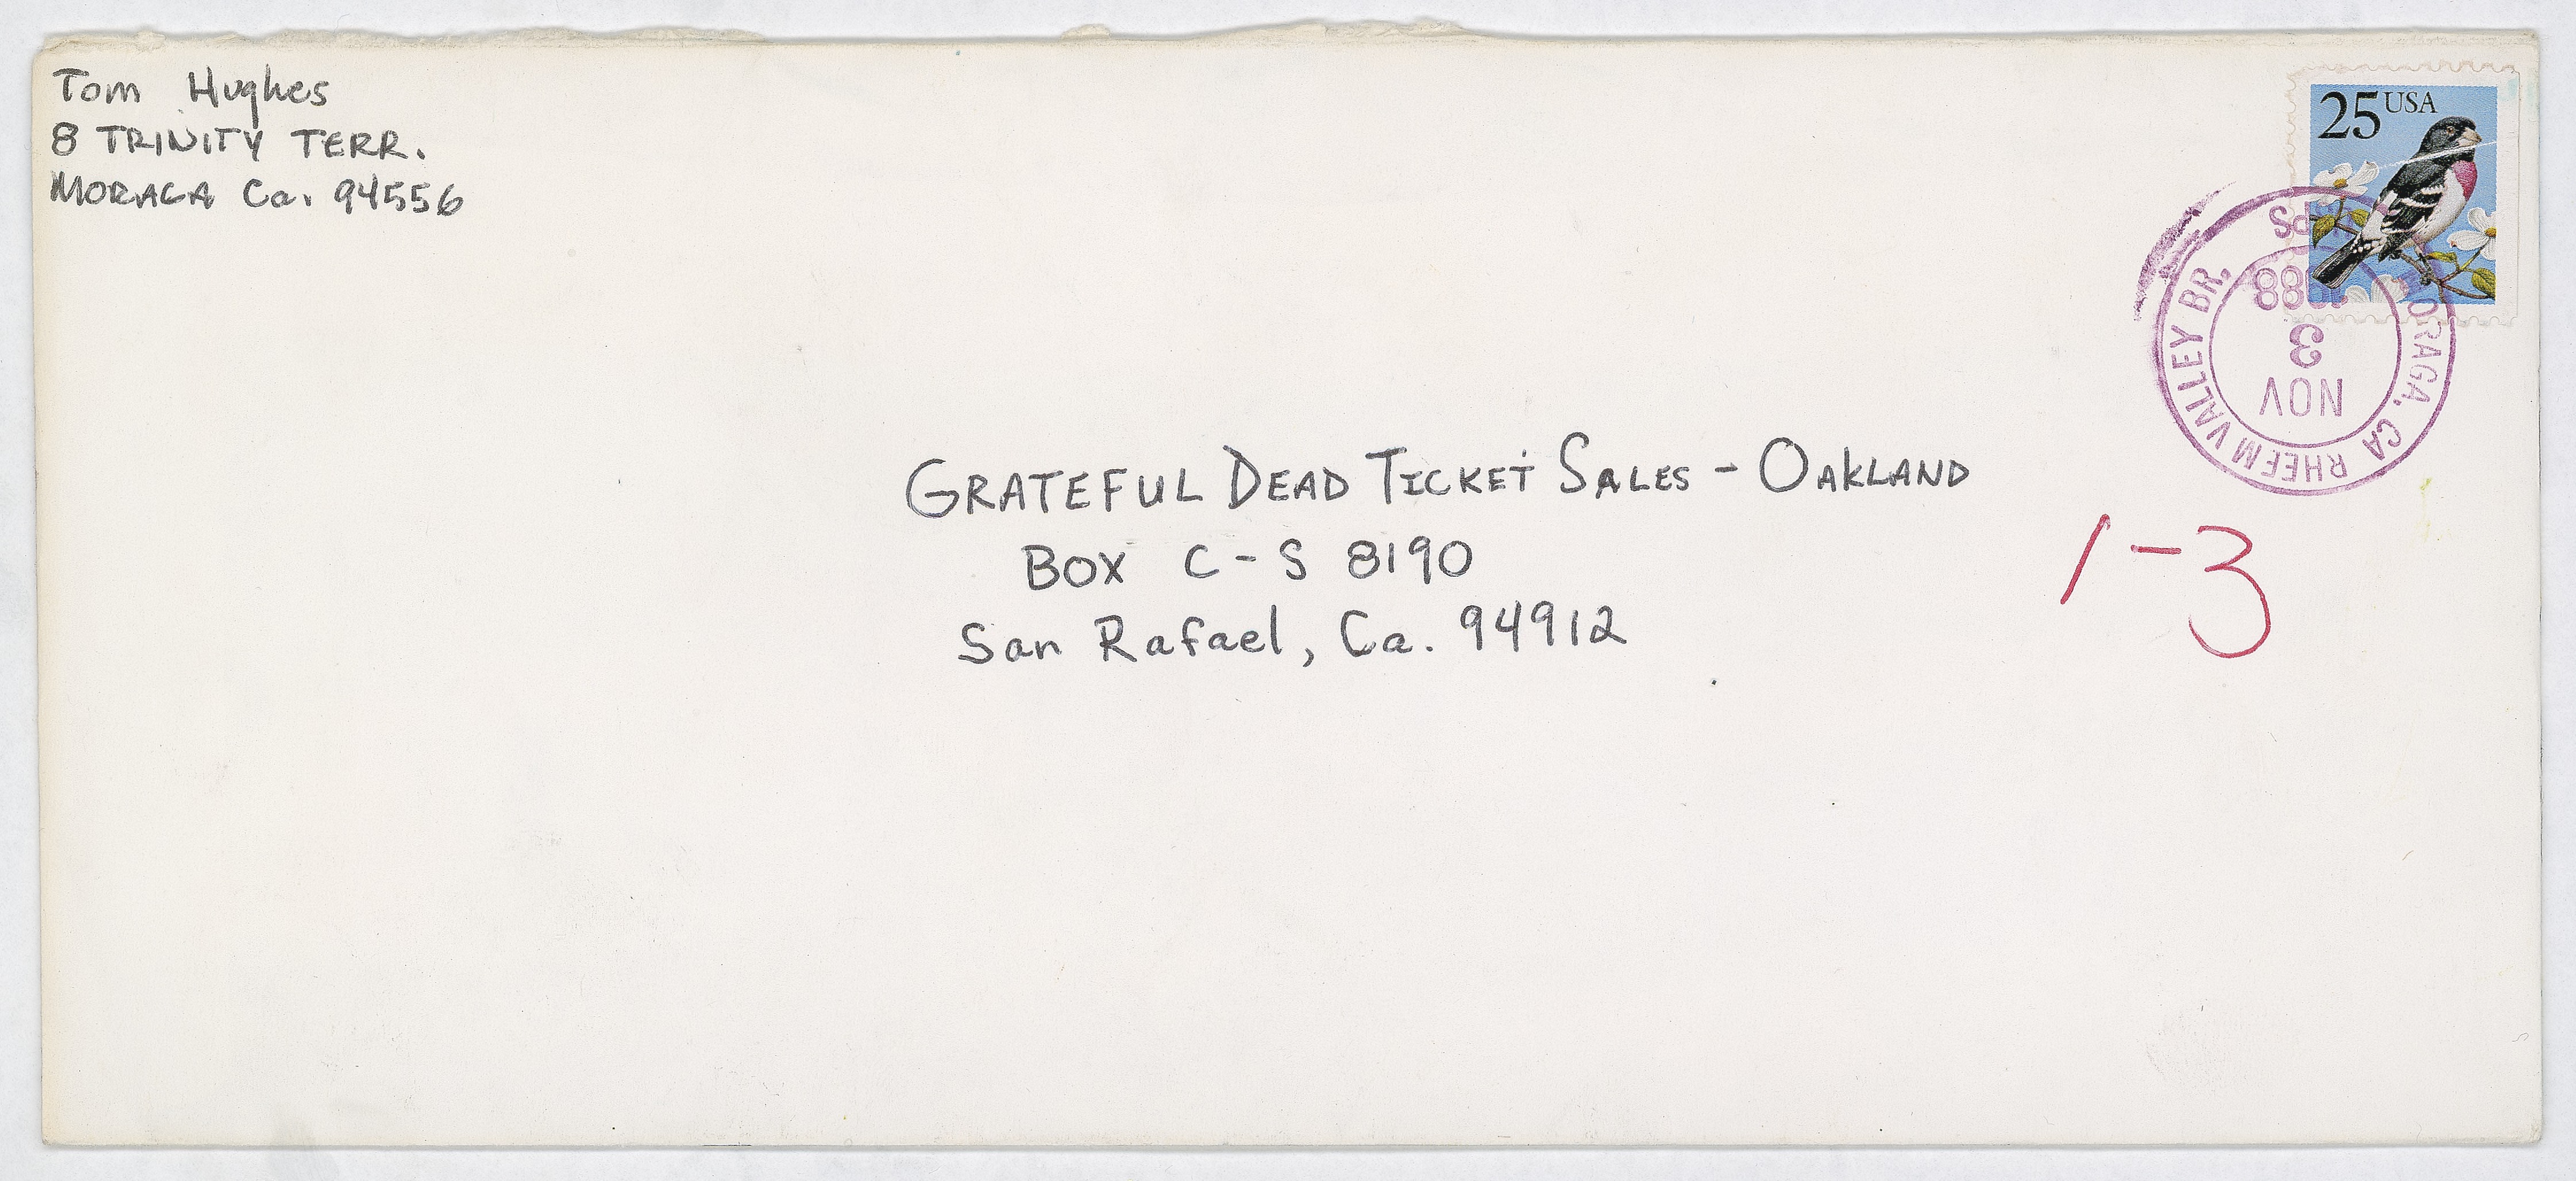 Tom Hughes
8 TRINITY TERR.
MORAGA Ca. 94556
25 USA
GRATEFUL DEAD TICKET SALES - OAKLAND
BOX C-S 8190
San Rafael, Ca. 94912
1-3
MORAGA, CA RHEEM VALLEY BR.
NOV
3
1988
USPS